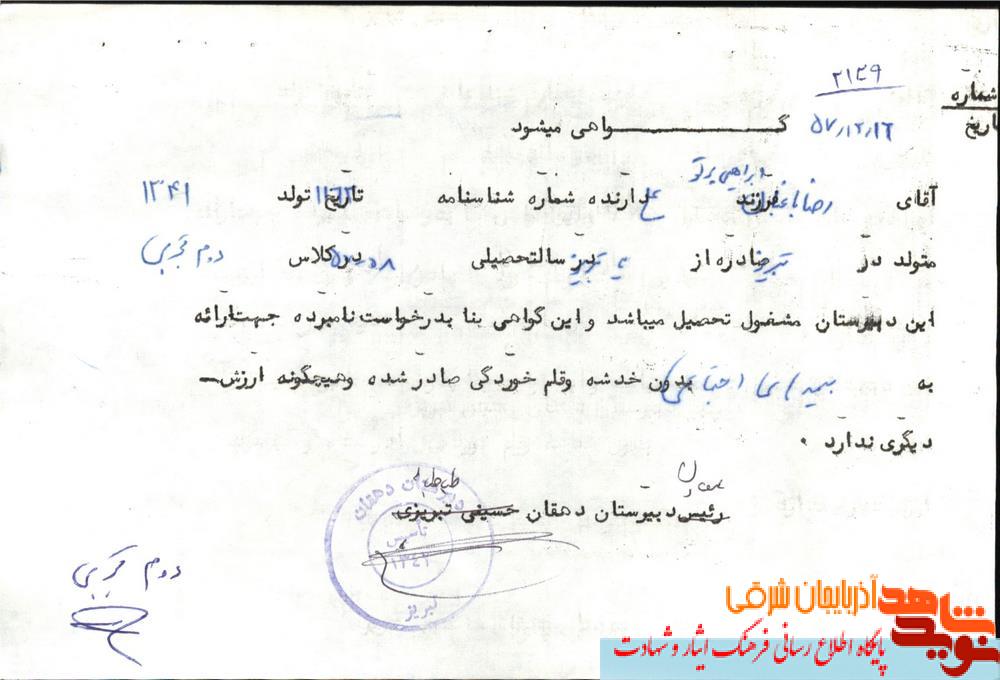 شماره ۲۱۴۹
تاریخ ۵۷/۱۲/۱۶
گواهی میشود
ابراهیم پرتو
آقای رضا فرزند دارنده شماره شناسنامه تاریخ تولد ۱۳۴۱
متولد در تبریز صادره از تبریز در سالتحصیلی در کلاس دوم تجربی
این دبیرستان مشغول تحصیل میباشد و این گواهی بنا بدرخواست نامبرده جهت ارائه
به بیمه های اجتماعی بدون خدشه وقلم خوردگی صادر شده وهیچگونه ارزش
دیگری ندارد .
معاون
رئیس دبیرستان دهقان حسیفی تبریزی
دبیرستان دهقان
تاسیس
۱۳۴۲
تبریز
دوم تجربی
نوید شاهد آذربایجان شرقی
پایگاه اطلاع رسانی فرهنگ ایثار و شهادت